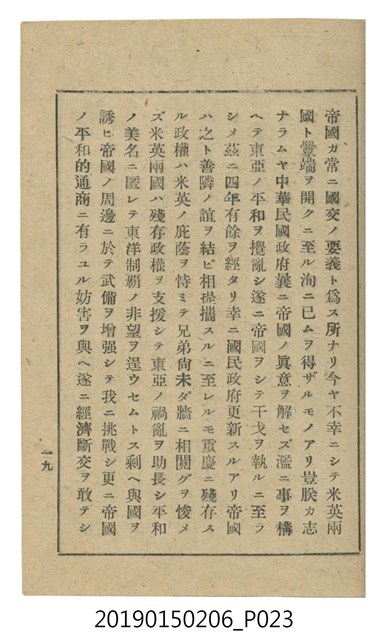 帝國カ常ニ國交ノ要義ト爲ス所ナリ今ヤ不幸ニシテ米英兩
國ト釁端ヲ開クニ至ル洵ニ已ムヲ得ザルモノアリ豈朕カ志
ナラムヤ中華民國政府曩ニ帝國ノ眞意ヲ解セズ濫ニ事ヲ構
ヘテ東亞ノ平和ヲ攪亂シ遂ニ帝國ヲシテ干戈ヲ執ルニ至ラ
シメ茲ニ四年有餘ヲ經タリ幸ニ國民政府更新スルアリ帝國
ハ之ト善隣ノ誼ヲ結ビ相提攜スルニ至レルモ重慶ニ殘存ス
ル政權ハ米英ノ庇蔭ヲ恃ミテ兄弟尙未ダ牆ニ相鬩グヲ悛メ
ズ米英兩國ハ殘存政權ヲ支援シテ東亞ノ禍亂ヲ助長シ平和
ノ美名ニ匿レテ東洋制覇ノ非望ヲ逞ウセムトス剩ヘ與國ヲ
誘ヒ帝國ノ周邊ニ於テ武備ヲ增强シテ我ニ挑戰シ更ニ帝國
ノ平和的通商ニ有ラユル妨害ヲ與ヘ遂ニ經濟斷交ヲ敢テシ
一九
20190150206_P023